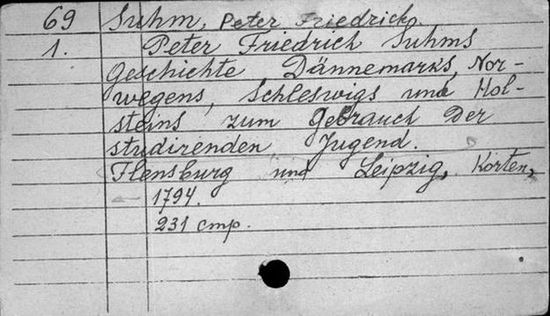 69 Suhm, Peter Friedrich.
1. Peter Friedrich Suhms
Geschichte Dännemarks, Nor-
wegens, Schleswigs und Hol-
steins zum Gebrauch der
studirenden Jugend.
Flensburg und Leipzig, Korten,
1794.
231 стр.